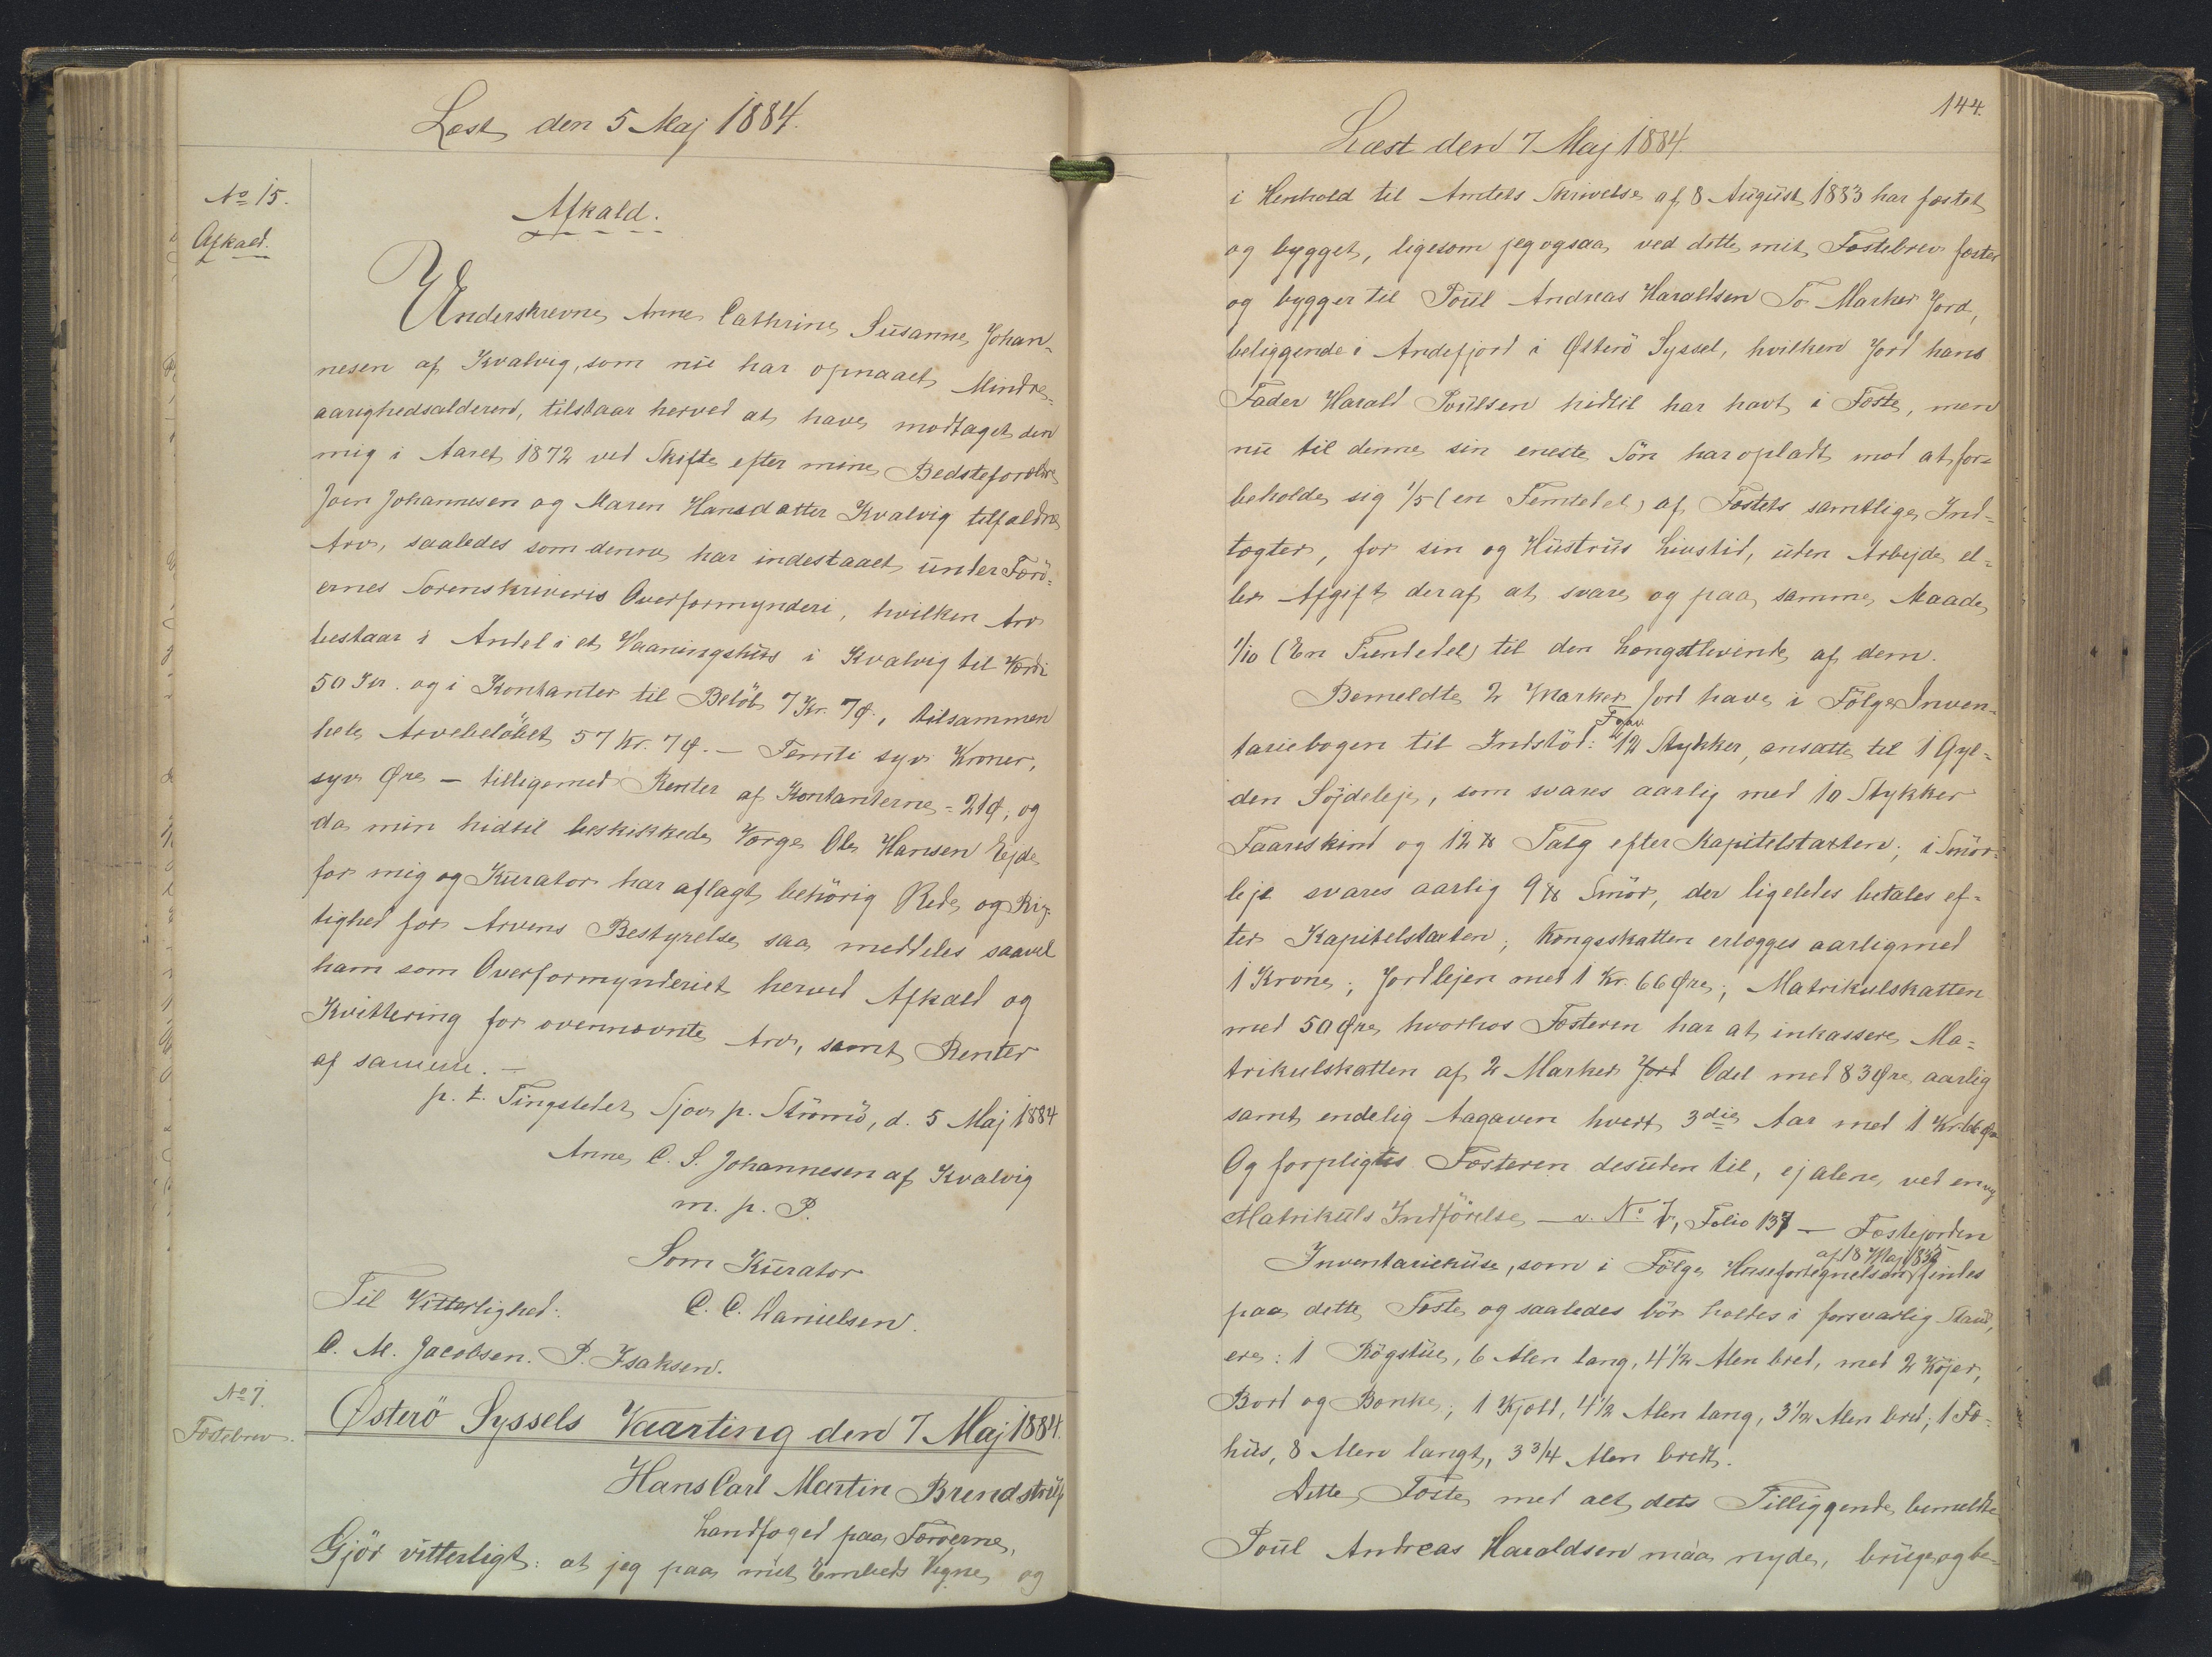 Læst den 5 Maj 1884.
No 15.
Afkald.
Afkald.
Underskrevne Anne Cathrine Susanne Johan-
nesen af Kvalvig, som nu har opnaaet Mindre-
aarighedsalderen, tilstaar herved at have modtaget den
mig i Aaret 1872 ved Skifte efter mine Bedsteforældre
Joen Johannesen og Maren Hansdatter Kvalvig tilfaldne
Arv, saaledes som denne har indestaaet under Færö-
ernes Sorenskriveris Overformynderi, hvilken Arv
bestaar i Andel i et Vaaningshus i Kvalvig til Værdi
50 Kr. og i Kontanter til Belöb 7 Kr. 7 Ø., tilsammen
hele Arvebelöbet 57 Kr. 7 Ø. – Femti syv Kroner,
syv Øre – tilligemed Renter af Kontanterne = 21 Ø, og
da min hidtil beskikkede Værge Ole Hansen Ejde
for mig og Kurator har aflagt behörig Rede og Rig-
tighed for Arvens Bestyrelse saa meddeles saavel
ham som Overformynderiet herved Afkald og
Kvittering for ovennævnte Arv, samt Renter
af samme. –
p. t. Tingstedet Sjov p. Strömö, d. 5 Maj 1884
Anne C. S. Johannesen af Kvalvig
m. p. P.
Som Kurator
Til Vitterlighed: C. C. Danielsen.
C. M. Jacobsen. P. Isaksen.
No 7.
Fæstebrev.
Østerö Syssels Vaarting den 7 Maj 1884.
Hans Carl Martin Brendstrup
Landfoged paa Færöerne,
Gjör vitterligt: at jeg paa mit Embeds Vegne og
144.
Læst den 7 Maj 1884.
i Henhold til Amtets Skrivelse af 8 August 1883 har fæstet
og bygget, ligesom jeg ogsaa ved dette mit Fæstebrev fæster
og bygger til Poul Andreas Haraldsen To Marker Jord,
beliggende i Andefjord i Østerö Syssel, hvilken Jord hans
Fader Harald Poulsen hidtil har havt i Fæste, men
nu til denne sin eneste Sön har opladt mod at for-
beholde sig 1/5 (en Femtedel) af Fæstets samtlige Ind-
tægter, for sin og Hustrus Livstid, uden Arbejde el-
ler Afgift deraf at svare og paa samme Maade
1/10 (En Tiendedel) til den Længstlevende af dem.
Bemeldte 2 Marker Jord have i Fölge Inven-
tariebogen til Indstöd: 12 Stykker, ansatte til 1 Gyl-
den Söjdeleje, som svares aarlig med 10 Stykker
Faareskind og 12 ℔ Talg efter Kapitelstaxten; i Smör-
leje svares aarlig 9 ℔ Smör, der ligeledes betales ef-
ter Kapitelstaxten; Kongsskatten erlægges aarlig med
1 Krone; Jordlejen med 1 Kr. 66 Øre; Matrikulskatten
med 50 Øre hvorhos Fæsteren har at inkassere Ma-
trikulskatten af 2 Marker Jord Odel med 83 Øre aarlig
samt endelig Aagaven hvert 3die Aar med 1 Kr. 66 Øre
Og forpligtes Fæsteren desuden til, ej alene ved en ny
Matrikuls Indförelse – v. No 7, Folio 137 – Fæstejorden
af 18 Maj
Inventariehuse, som i Fölge Husefortegnelsen findes
paa dette Fæste og saaledes bör holdes i forsvarlig Stand,
ere: 1 Rögstue, 6 Alen lang, 4 1/2 Alen bred, med 2 Köjer,
Bord og Bænke; 1 Kjæld, 4 1/2 Alen lang, 3 1/2 Alen bred; 1 Fæ-
hus, 8 Alen langt, 3 3/4 Alen bredt.
Dette Fæste med alt dets Tilliggende bemeldte
Poul Andreas Haraldsen maa nyde, bruge og be-